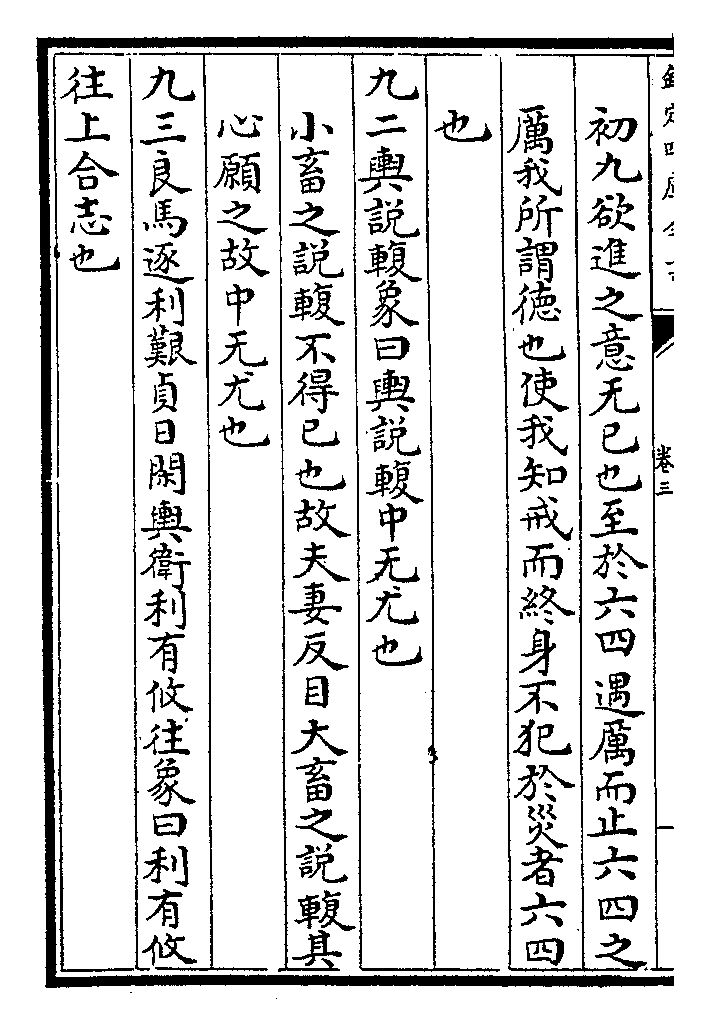 初九欲進之意无已也至於六四遇厲而止六四之
厲我所謂徳也使我知戒而終身不犯於災者六四
也
九二輿説輹象曰輿説輹中无尤也
小畜之説輹不得已也故夫妻反目大畜之説輹其
心願之故中无尤也
九三良馬逐利艱貞日閑輿衛利有攸往象曰利有攸
往上合志也
卷三